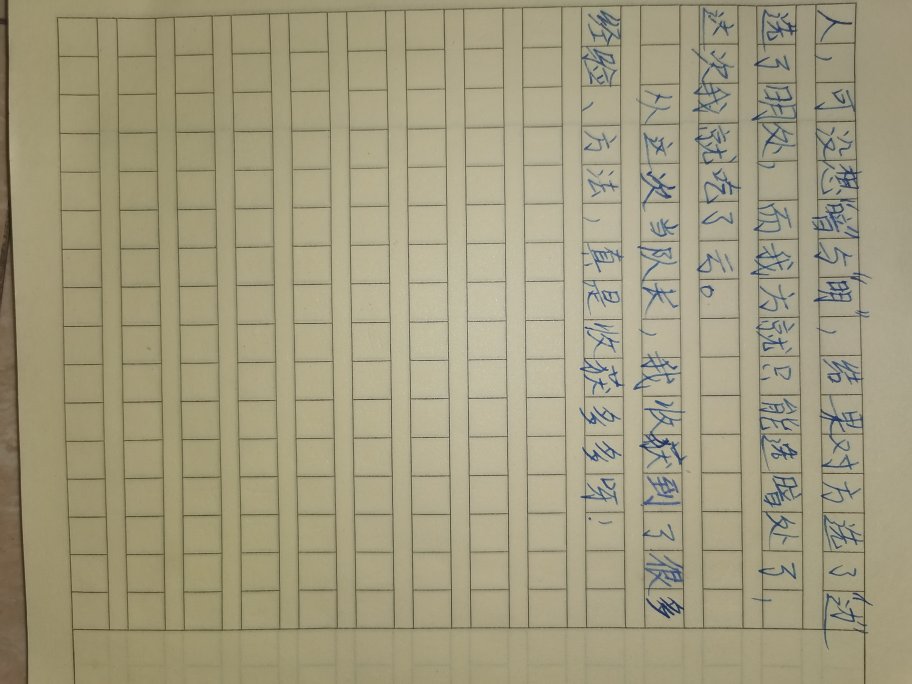 人，可没想“暗”与“明”，结果对方选了
选了明处，而我方就只能选暗处了，
这次我就吃了亏。
从这次当队长，我收获到了很多
经验、方法，真是收获多多呀！